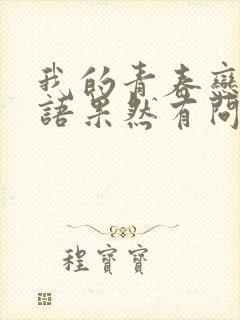 我的青春戀
語果然有問
程寶寶